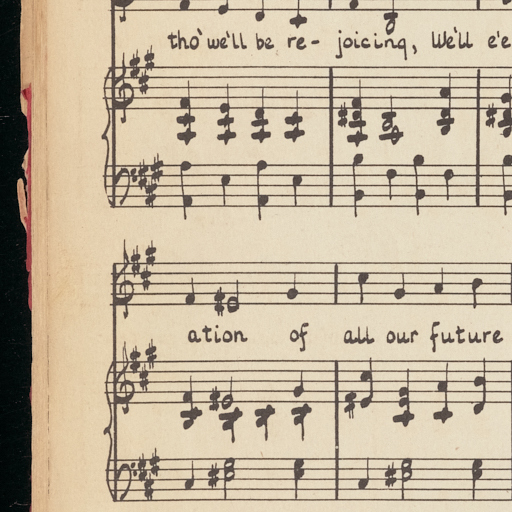 tho' we'll be re- joicing, We'll e'e
ation of all our future